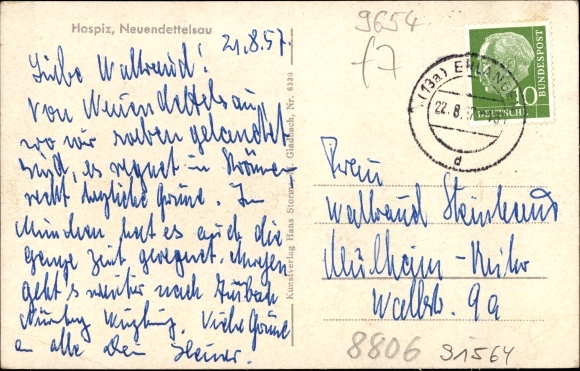 Hospiz, Neuendettelsau
21.8.57.
Liebe Waltraud!
Von Neuendettelsau,
wo wir soeben gelandet
sind, es regnet in Strömen
recht herzliche Grüße. In
München hat es auch die
ganze Zeit geregnet. Morgen
geht's weiter nach
Nürnberg Würzburg. Viele Grüße
an alle Dein Heiner.
Kunstverlag Hans Stormer, M. Gladbach, Nr. 6330
9654
f7
(13a) ERLANGEN
22.8.57
d
10
DEUTSCHE
BUNDESPOST
Frau
Waltraud
Mülheim-Ruhr
Wallstr. 9a
8806
31564